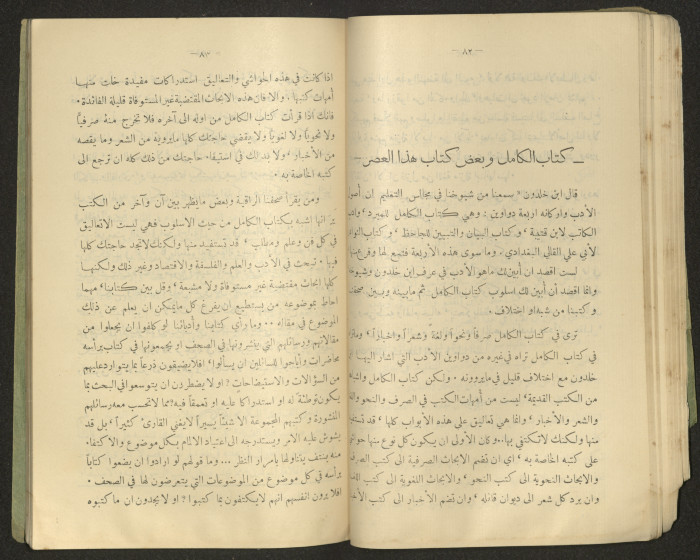 — ٨٢ —
— كتاب الكامل وبعض كتاب هذا العصر —
قال ابن خلدون « سمعنا من شيوخنا في مجالس التعليم ان أصول
الأدب واركانه اربعة دواوين : وهي كتاب الكامل للمبرد ، وأدب
الكاتب لابن قتيبة ، وكتاب البيان والتبيين للجاحظ ، وكتاب النوادر
لأبي علي القالي البغدادي ، وما سوى هذه الأربعة فتبع لها وفرع منها
لست اقصد ان أبين لك ماهو الأدب في عرف ابن خلدون وشيوخه
وانما أقصد أن أبين لك اسلوب كتاب الكامل ثم مابينه وبين صحفنا
وكتبنا من شبه او اختلاف .
ترى في كتاب الكامل صرفاً ونحواً ولغةً وشعراً واخباراً ، ومثله
في كتاب الكامل تراه في غيره من دواوين الأدب التي اشار اليها ابن
خلدون مع اختلاف قليل في مايروونه . ولكن كتاب الكامل واشباهه
من الكتب القديمة ، ليست من أمهات الكتب في الصرف والنحو واللغة
والشعر والأخبار ، وانما هي تعاليق على هذه الأبواب كلها ، قد تستفيد
منها ولكنك لا تكتفي بها.. وكان الأولى ان يكون كل نوع منها
على كتبه الخاصة به ، اي ان تضم الابحاث الصرفية الى كتب الصرف
والابحاث النحوية الى كتب النحو ، والابحاث اللغوية الى كتب اللغة
وان يرد كل شعر الى ديوان قائله ، وان تضم الأخبار الى كتب الأخبار
— ٨٣ —
اذا كانت في هذه الحواشي والتعاليق استدراكات مفيدة خلت منها
أمهات كتبها ، والا فان هذه الابحاث المقتضبة غير المستوفاة قليلة الفائدة .
فانك اذا قرأت كتاب الكامل من اوله الى آخره فلا تخرج منه صرفياً
ولا نحوياً ولا لغوياً ولا يقضي حاجتك كلها مايرويه من الشعر وما يقصه
من الأخبار ، ولا بد لك في استيفاء حاجتك من ذلك كله ان ترجع الى
كتبه الخاصة به .
ومن يقرأ صحفنا الراقية وبعض مايظهر بين آن وآخر من الكتب
ير انها اشبه بكتاب الكامل من حيث الاسلوب فهي ليست الا تعاليق
في كل فن وعلم ومطلب ، قد تستفيد منها ولكنك لاتجد حاجتك كلها
فيها . تبحث في الأدب والعلم والفلسفة والاقتصاد وغير ذلك ولكنها
كلها ابحاث مقتضبة غير مستوفاة ولا مشبعة ، وقل بين كتابنا ، مهما
احاط بموضوعه من يستطيع ان يفرغ كل مايمكن ان يعلم عن ذلك
الموضوع في مقاله .. وما رأي كتابنا وأدبائنا لو كلفوا ان يجعلوا من
مقالاتهم ورسائلهم التي ينشرونها في الصحف او يجمعونها في كتاب برأسه
محاضرات وأباحوا للسائلين ان يسألوا ، افلا يضيقون ذرعاً بما يتوارد عليهم
من السؤالات والاستيضاحات ? او لا يضطرون ان يتوسعوا في البحث بما
يكون توطئة له او استدراكا عليه او تعمقاً فيه ? مما لا تحسب معه رسائلهم
المنشورة وكتبهم المجموعة الا شيئاً يسيراً لا يغني القارئ كثيراً ، بل قد
يشوش عليه الامر ويستدرجه الى اعتياد الالمام بكل موضوع والاكتفاء
منه بنتف يتناولها بامرار النظر ... وما قولهم لو ارادوا ان يضعوا كتاباً
برأسه في كل موضوع من الموضوعات التي يتعرضون لها في الصحف .
افلا يرون انفسهم انهم لايكتفون بما كتبوا ? او لا يجدون ان ما كتبوه